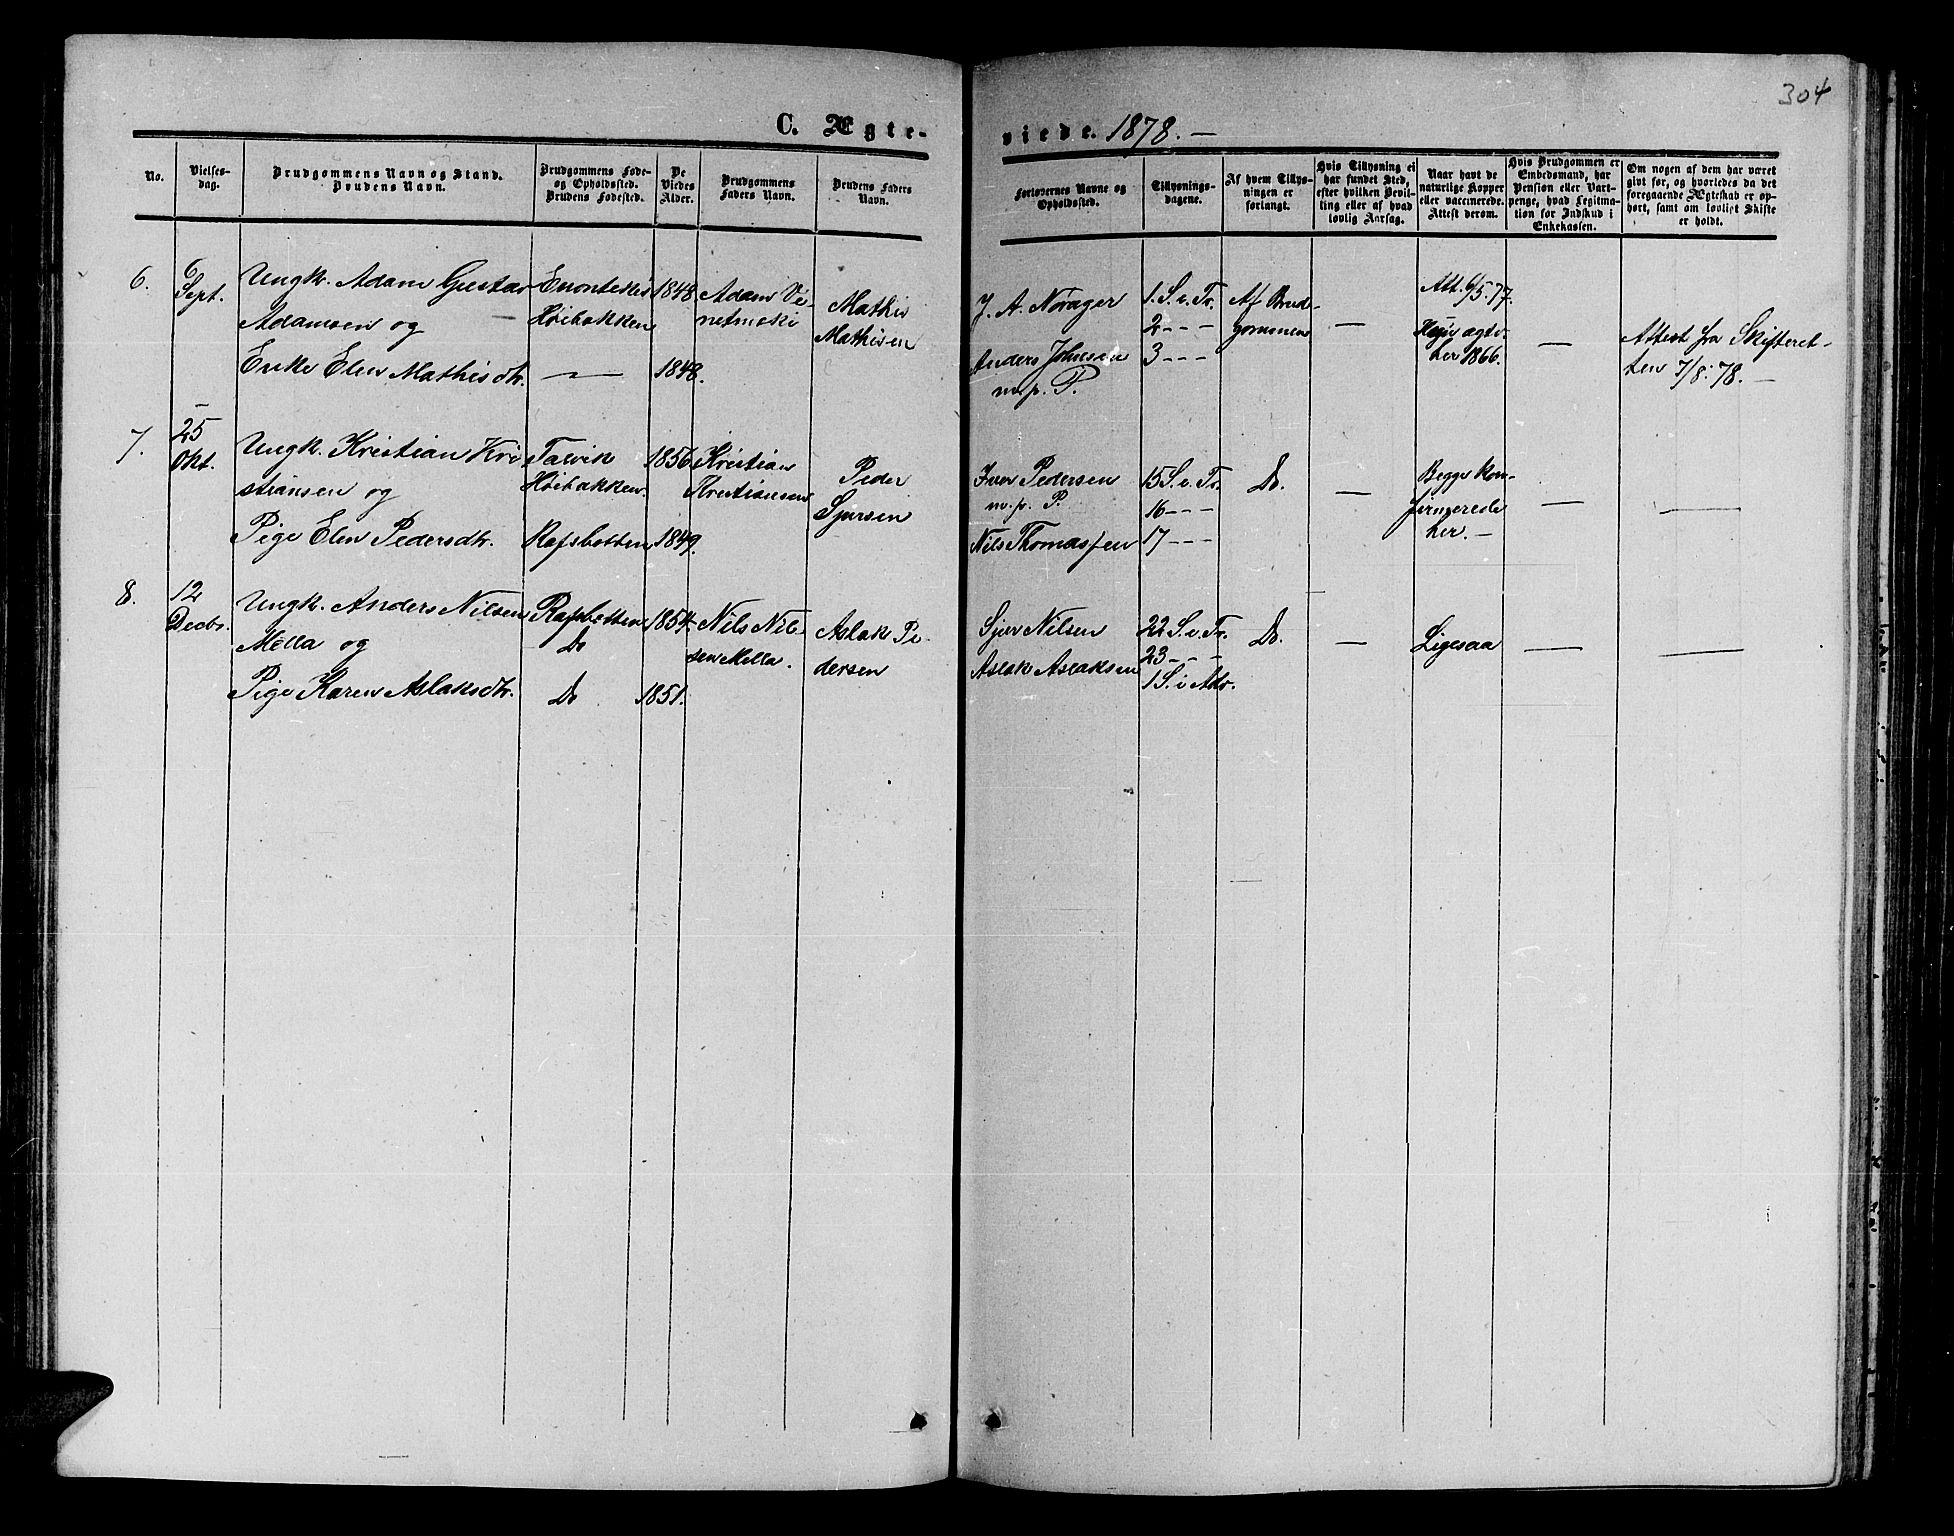 304
C. Ægte-
viede. 1878. —
No.
Vielses-
dag.
Brudgommens Navn og Stand.
Brudens Navn.
Brudgommens Føde-
og Opholdssted.
Brudens Fødested.
De
Viedes
Alder.
Brudgommens
Faders Navn.
Brudens Faders
Navn.
Forlovernes Navne og
Opholdssted.
Tillysnings-
dagene.
Af hvem Tillys-
ningen er
forlangt.
Hvis Tillysning ei
har fundet Sted,
efter hvilken Bevil-
ling eller af hvad
lovlig Aarsag.
Naar havt de
naturlige Kopper
eller vaccinerede.
Attest derom.
Hvis Brudgommen er
Embedsmand, har
Pension eller Vart-
penge, hvad Legitima-
tion for Indskud i
Enkekassen.
Om nogen af dem har været
givt før, og hvorledes da det
foregaaende Ægteskab er op-
hørt, samt om lovligt Skifte
er holdt.
6.
6
Sept.
Ungk. Adam Gustav
Adamsen og
Enke Elen Mathisdtr.
Enontekis
Høibakken
—
1848
1848.
Adam
Mathis
Mathisen
J. A. Norager
Anders Johnsen
m. p. P.
1. S. e. Tr.
2 - - -
3 - - -
Af Brud-
gommen
—
Att. 6/5. 77.
her 1866.
—
Attest fra Skifteret-
ten 7/8. 78. —
7.
25
Okt.
Ungk. Kristian Kri-
stiansen og
Pige Elen Pedersdtr.
Talvik
Høibakken.
Rafsbotten
1856
1849.
Kristian
Kristiansen
Peder
Sjursen
Iver Pedersen
m. p. P.
Nils Thomassen
15 S. e. Tr.
16 - - -
17 - - -
Do.
—
Begge kon-
firmerede
her. —
—
—
8.
12
Decbr.
Ungk. Anders Nilsen
Mella og
Pige Karen Aslaksdtr.
Rafsbotten
Do
Do
1854.
1851.
Nils Nil-
sen Mella.
Aslak Pe-
dersen
Sjur Nilsen
Aslak Aslaksen
22 S. e. Tr.
23 - - -
1 S. i Adv.
Do.
—
Ligesaa
—
—